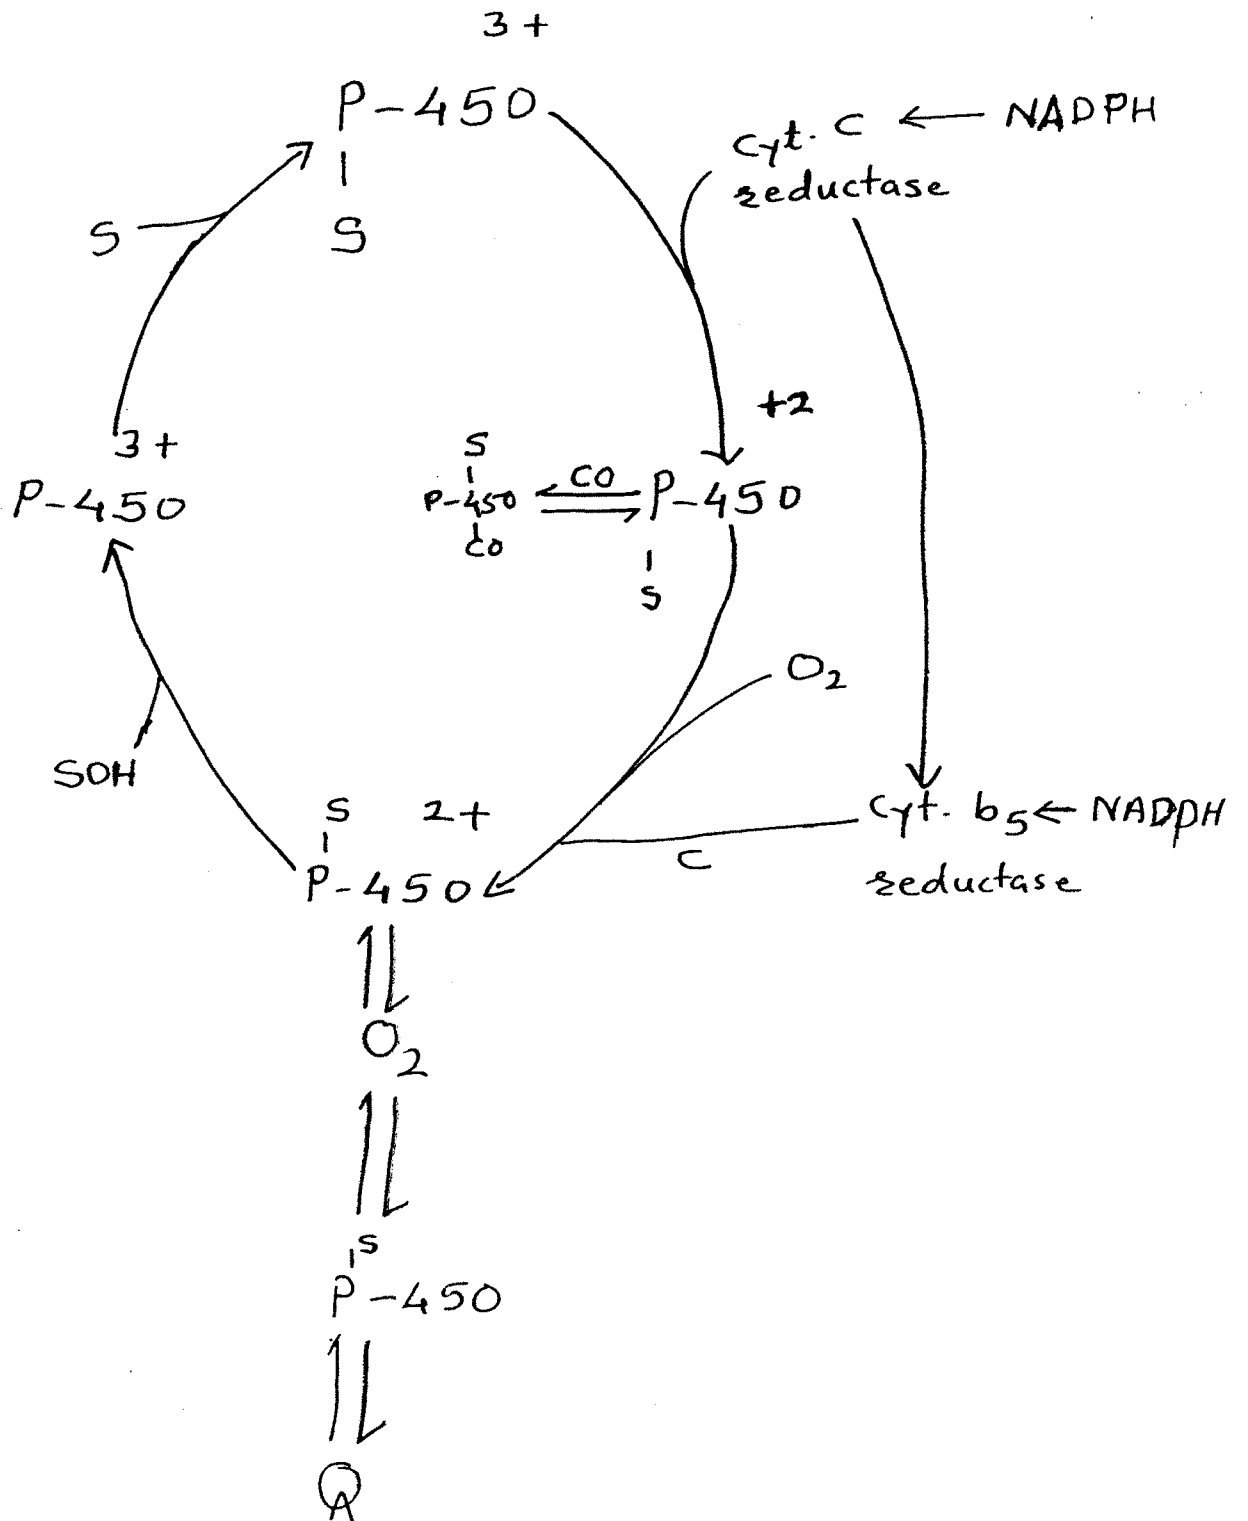 3+
P-450
S
cyt. c ← NADPH
reductase
S
+2
3+
P-450
S
P-450
CO
CO
P-450
S
O2
SOH
S 2+
P-450
C
Cyt. b5 ← NADPH
reductase
O2
S
P-450